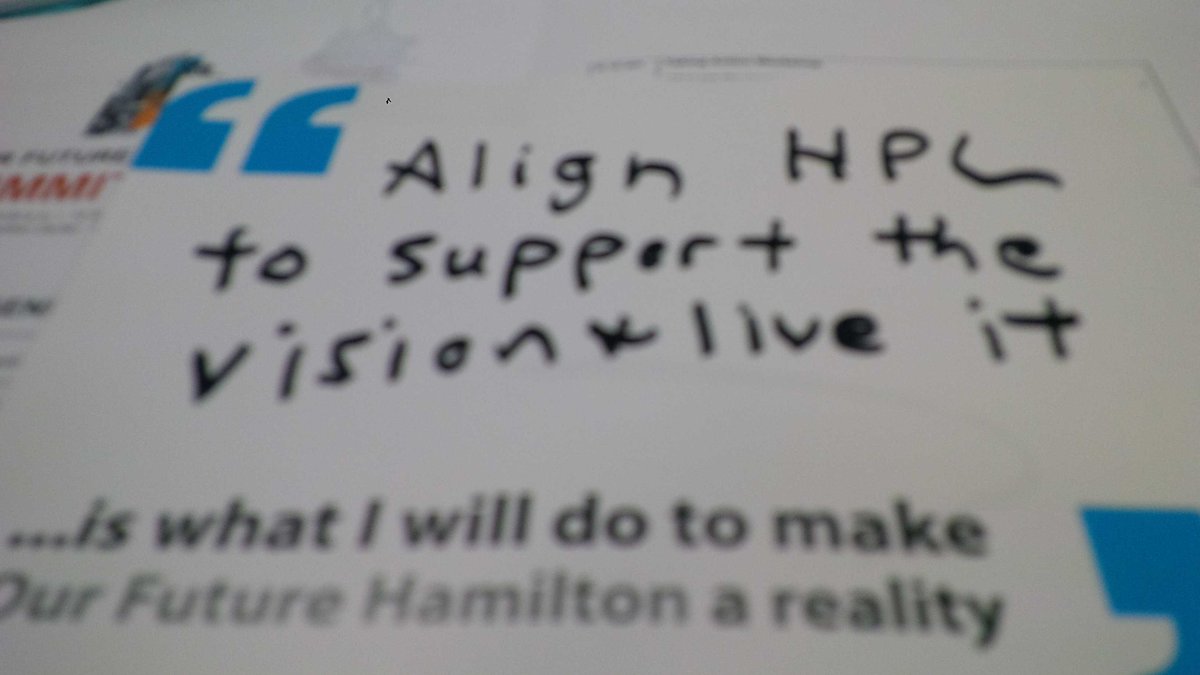 Align HPL
to support the
vision & live it
...is what I will do to make
Our Future Hamilton a reality
FUTURE